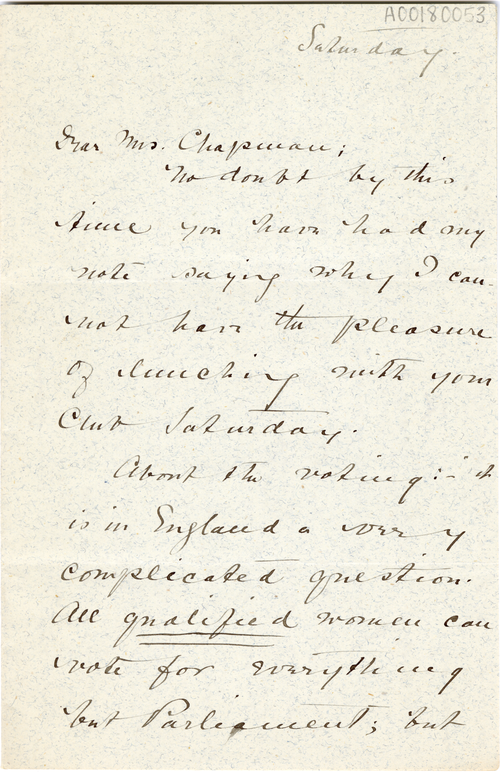 A00180053
Saturday.
Dear Mrs. Chapman;
No doubt by this
time you have had my
note saying why I can-
not have the pleasure
of lunching with your
Club Saturday.
About the voting:- it
is in England a very
complicated question.
All qualified women can
vote for everything
but Parliament; but